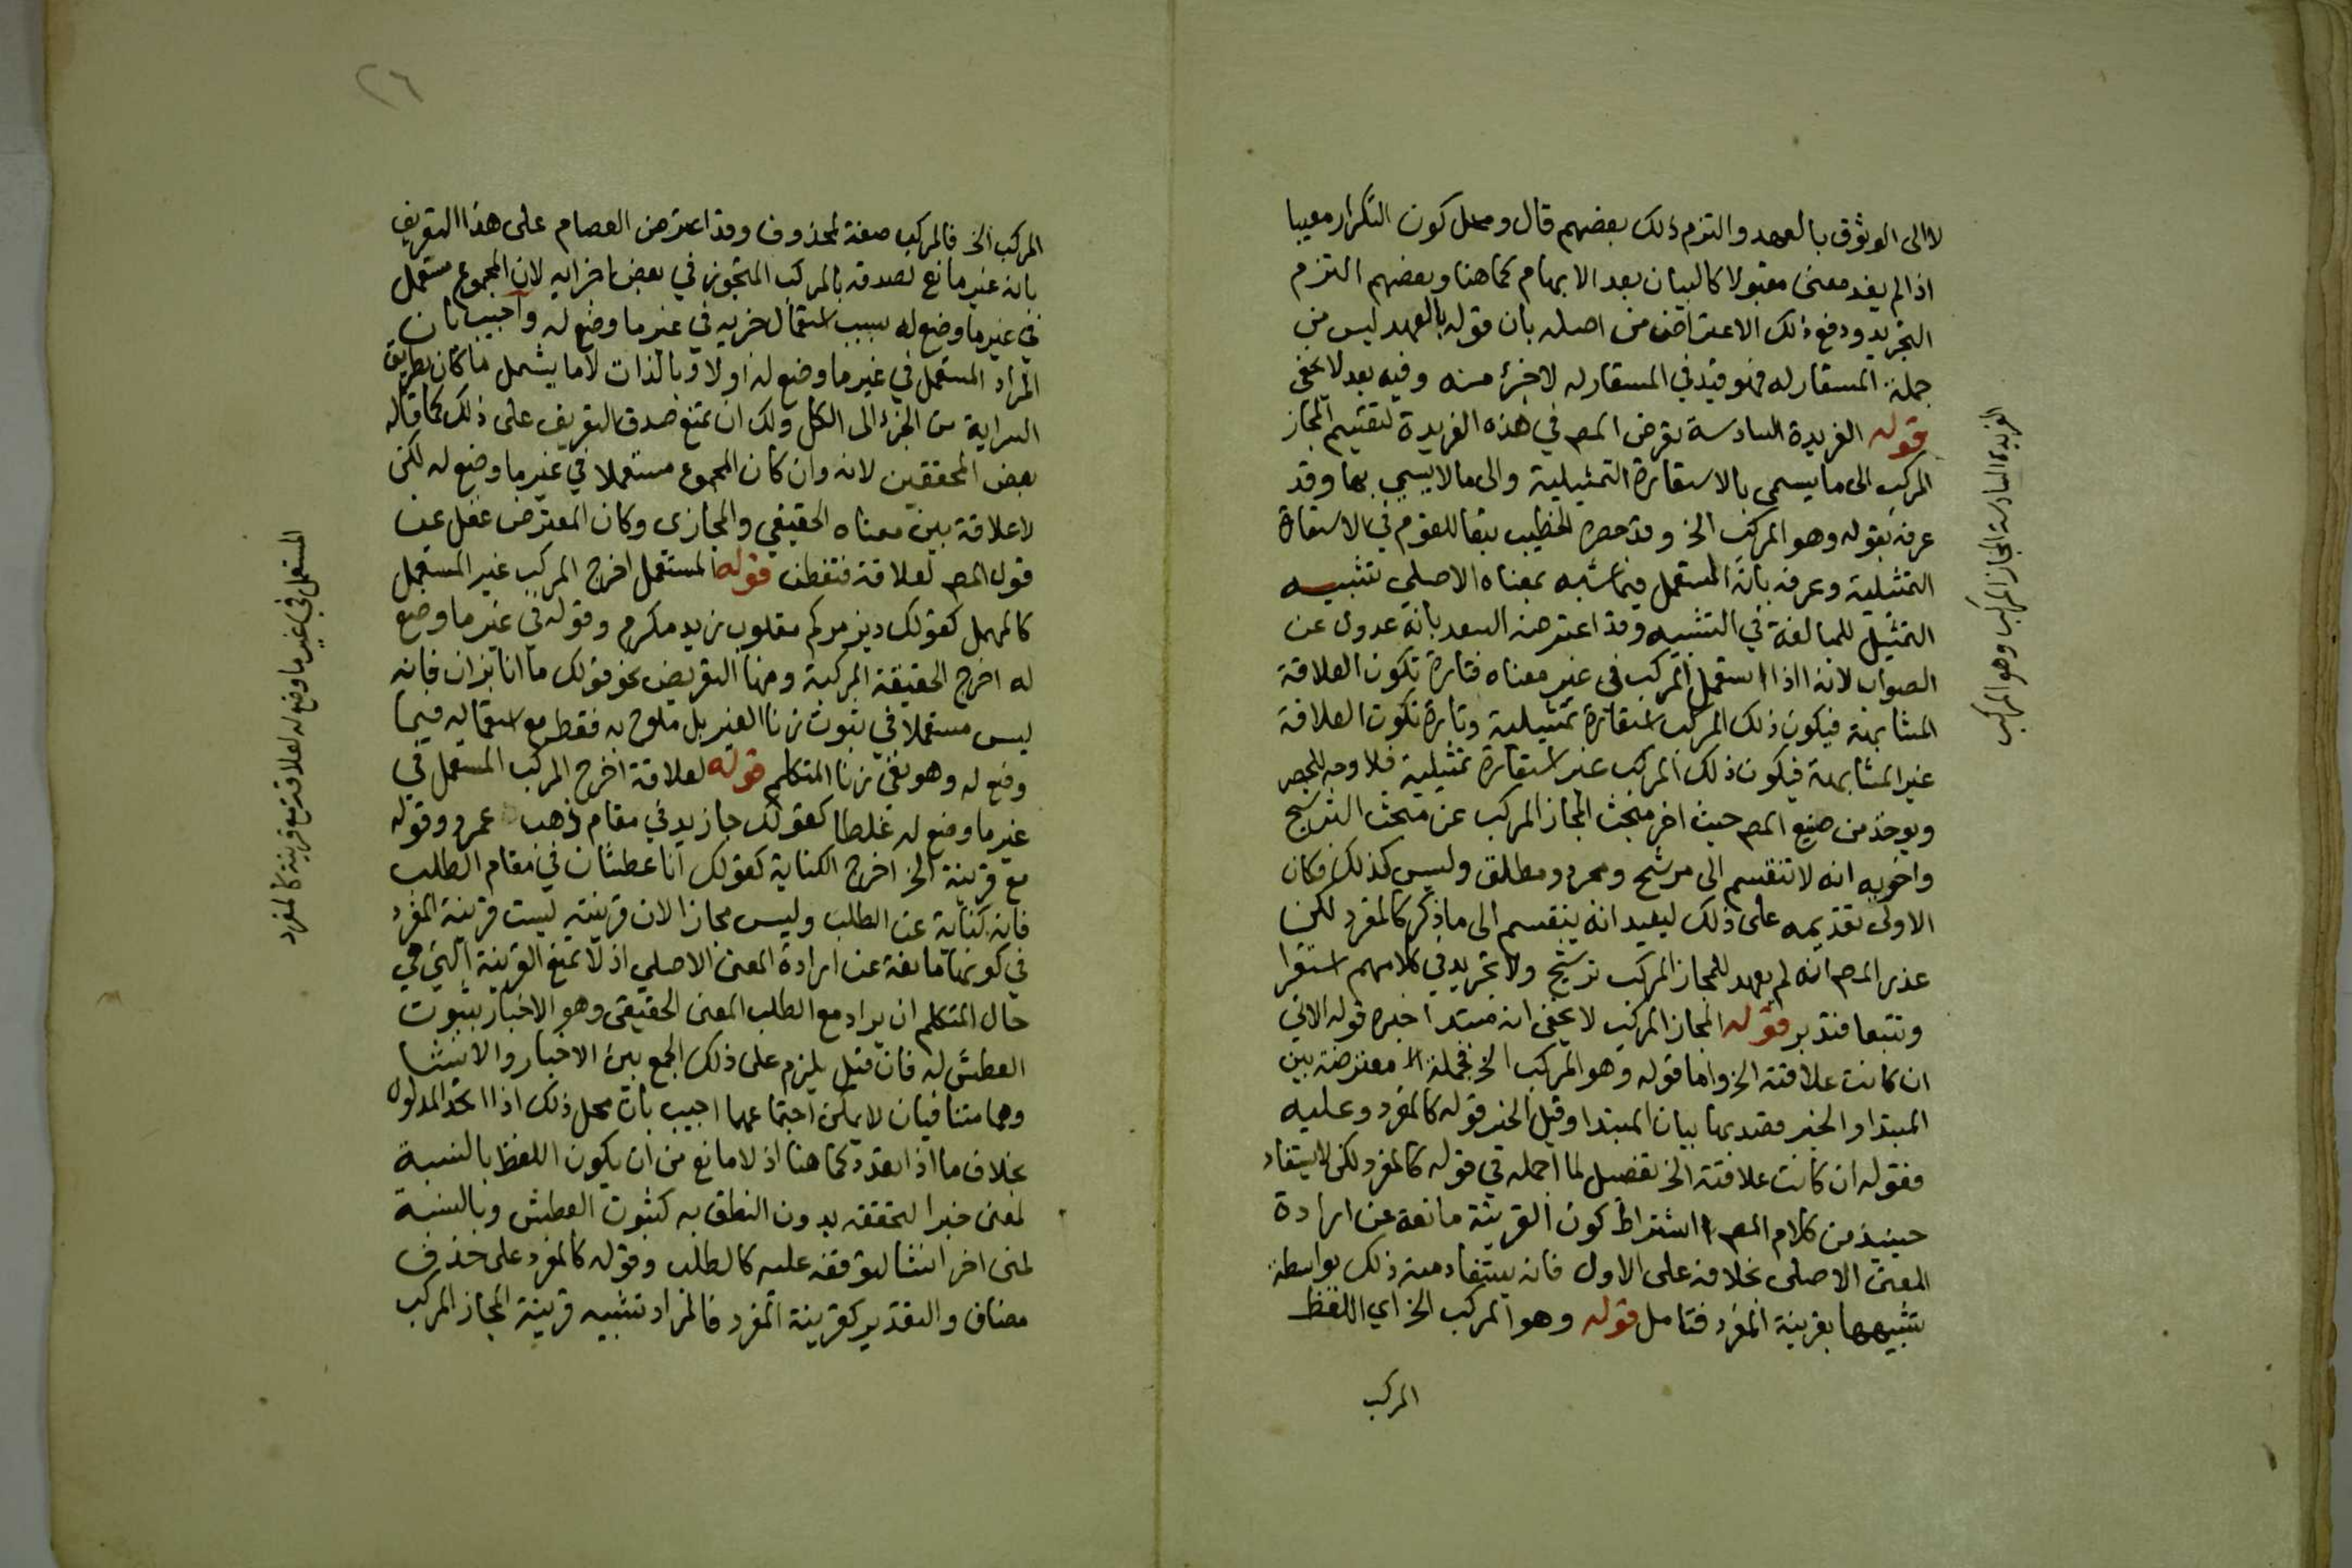 لا الى الوثوق بالعهد والتزم ذلك بعضهم قال ومحل كون التكرار معيبا
اذا لم يفد معنى مقبولا كالبيان بعد الابهام كما هنا وبعضهم التزم
التجريد ودفع ذلك الاعتراض من اصله بان قوله بالعهد ليس من
جملة المستعار له فهو قيد في المستعار له لا جزء منه وفيه بعد لا يخفى
قوله الفريدة السادسة تعرض المص في هذه الفريدة لتقسيم المجاز
المركب الى ما يسمى بالاستعارة التمثيلية والى ما لا يسمى بها وقد
عرفه بقوله وهو المركب الخ وقد حصره الخطيب تبعا للقوم في الاستعارة
التمثيلية وعرفه بانه المستعمل فيما شبه بمعناه الاصلي تشبيه
التمثيل للمبالغة في التشبيه وقد اعترضه السعد بانه عدول عن
الصواب لانه اذا استعمل المركب في غير معناه فتارة تكون العلاقة
المشابهة فيكون ذلك المركب استعارة تمثيلية وتارة تكون العلاقة
غير المشابهة فيكون ذلك المركب غير استعارة تمثيلية فلا وجه للحصر
ويوخذ من صنيع المص حيث اخر مبحث المجاز المركب عن مبحث الترشيح
واخويه انه لا تنقسم الى مرشح ومجرد ومطلق وليس كذلك فكان
الاولى تقديمه على ذلك ليفيد انه ينقسم الى ما ذكر كالمفرد لكن
عذر المص انه لم يعهد للمجاز المركب ترشيح ولا تجريد في كلامهم استقرا
وتتبعا فتدبر قوله المجاز المركب لا يخفى انه مبتدا خبره قوله الاتي
ان كانت علاقته الخ واما قوله وهو المركب الخ فجملة معترضة بين
المبتدا والخبر قصد بها بيان المبتدا وقيل الخبر قوله كالمفرد وعليه
فقوله ان كانت علاقته الخ تفصيل لما اجمله في قوله كالمفرد لكن لا يستفاد
حينيذ من كلام المص اشتراط كون القرينة مانعة عن ارادة
المعنى الاصلي بخلافه على الاول فانه يستفاد منه ذلك بواسطة
تشبيهها بقرينة المفرد فتامل قوله وهو المركب الخ اي اللفظ
المركب
الفريدة السادسة المجاز المركب وهو المركب
٢٦
المركب الخ فالمركب صفة لمحذوف وقد اعترض العصام على هذا التعريف
بانه غير مانع لصدقه بالمركب المتجوز في بعض اجزايه لان المجموع مستعمل
في غير ما وضع له بسبب استعمال جزيه في غير ما وضع له واجيب بان
المراد المستعمل في غير ما وضع له اولا وبالذات لا ما يشمل ما كان بطريق
السراية من الجزء الى الكل ولك ان تمنع صدق التعريف على ذلك كما قاله
بعض المحققين لانه وان كان المجموع مستعملا في غير ما وضع له لكن
لا علاقة بين معناه الحقيقي والمجازى وكان المعترض غفل عن
قول المص لعلاقة فتفطن قوله المستعمل اخرج المركب غير المستعمل
كالمهمل كقولك ديز مركم مقلوب زيد مكرم وقوله في غير ما وضع
له اخرج الحقيقة المركبة ومنها التعريض نحو قولك ما انا بزان فانه
ليس مستعملا في ثبوت زنا الغير بل ملوح به فقط مع استعماله فيما
وضع له وهو نفي زنا المتكلم قوله لعلاقة اخرج المركب المستعمل في
غير ما وضع له غلطا كقولك جا زيد في مقام ذهب عمرو وقوله
مع قرينة الخ اخرج الكناية كقولك انا عطشان في مقام الطلب
فانه كناية عن الطلب وليس مجازا لان قرينته ليست قرينة المفرد
في كونها مانعة عن ارادة المعنى الاصلي اذ لا تمنع القرينة التي هي
حال المتكلم ان يراد مع الطلب المعنى الحقيقي وهو الاخبار بثبوت
العطش له فان قيل يلزم على ذلك الجمع بين الاخبار والانشا
وهما متنافيان لا يمكن اجتماعهما اجيب بان محل ذلك اذا اتحد المدلول
بخلاف ما اذا تعدد كما هنا اذ لا مانع من ان يكون اللفظ بالنسبة
لمعنى خبرا لتحققه بدون النطق به كثبوت العطش وبالنسبة
لمعنى اخر انشا لتوقفه عليه كالطلب وقوله كالمفرد على حذف
مضاف والتقدير كقرينة المفرد فالمراد تشبيه قرينة المجاز المركب
المستعمل في غير ما وضع له لعلاقة مع قرينة كالمفرد